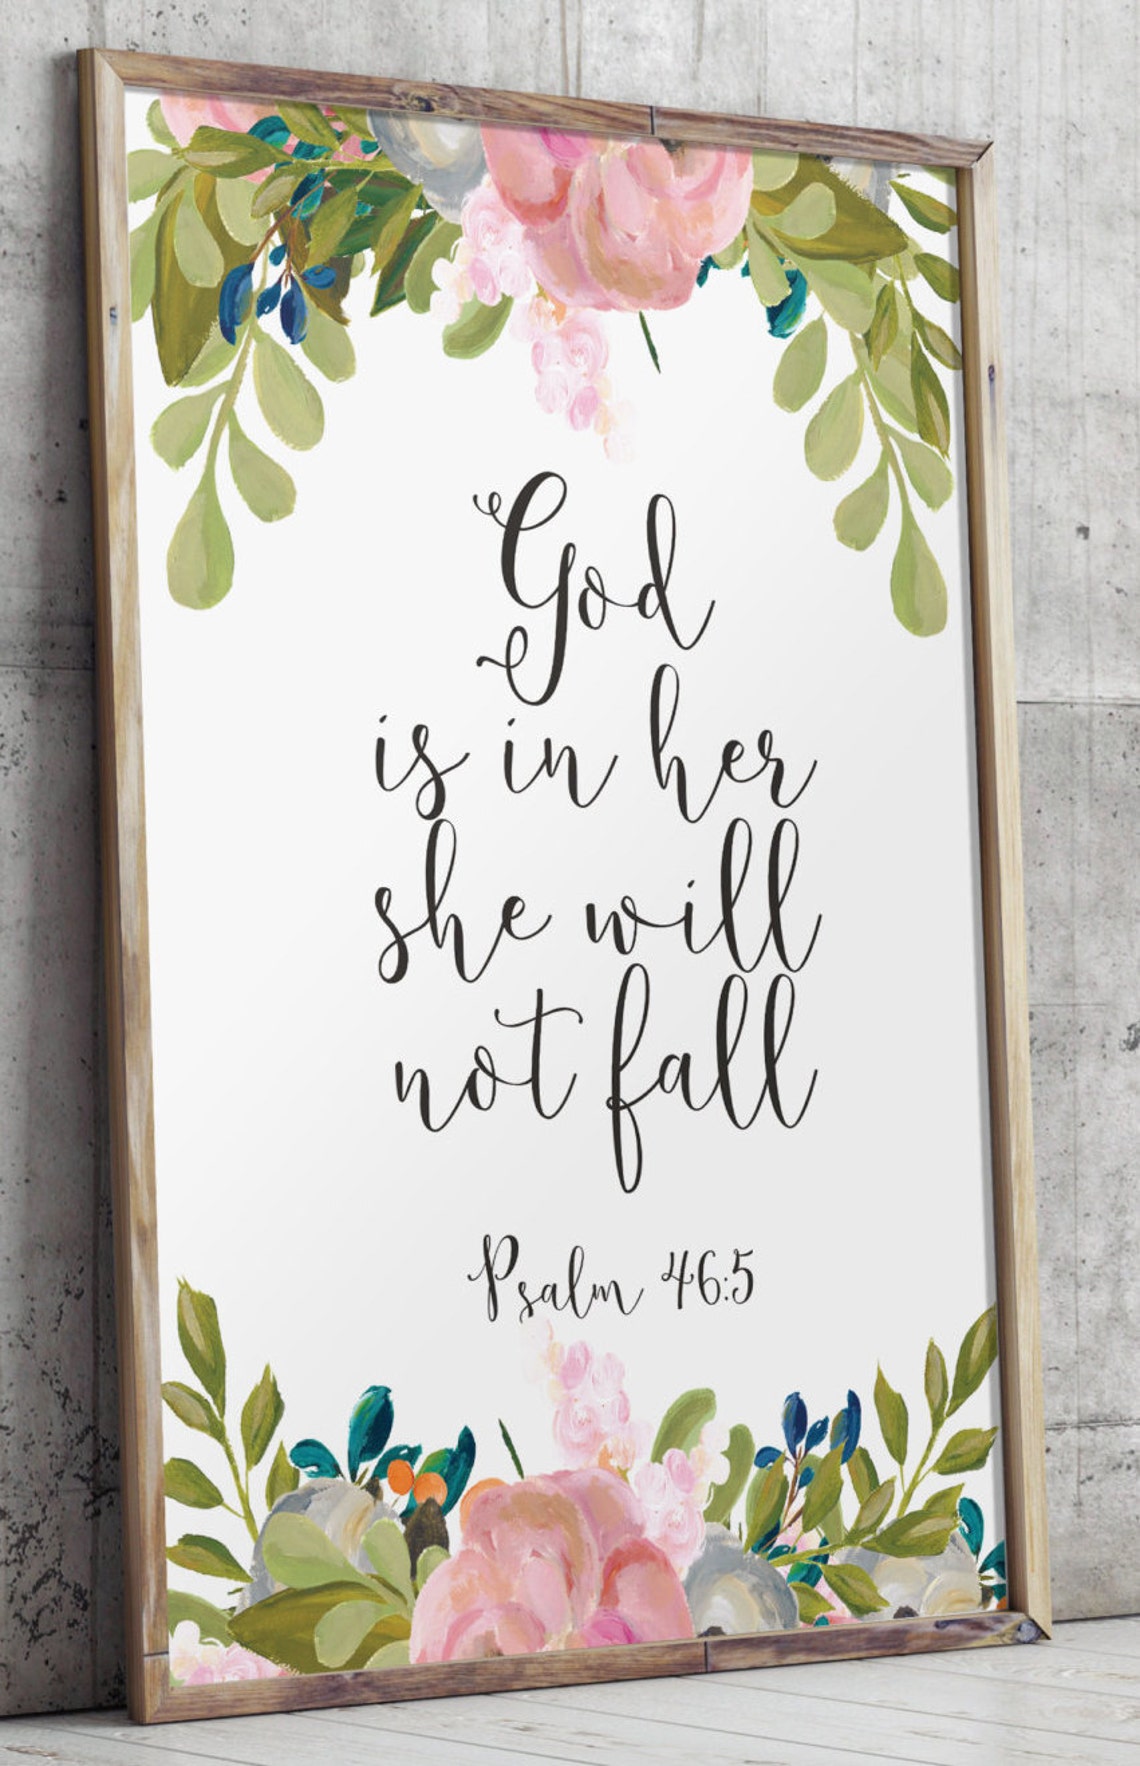 God
is in her
she will
not fall
Psalm 46:5